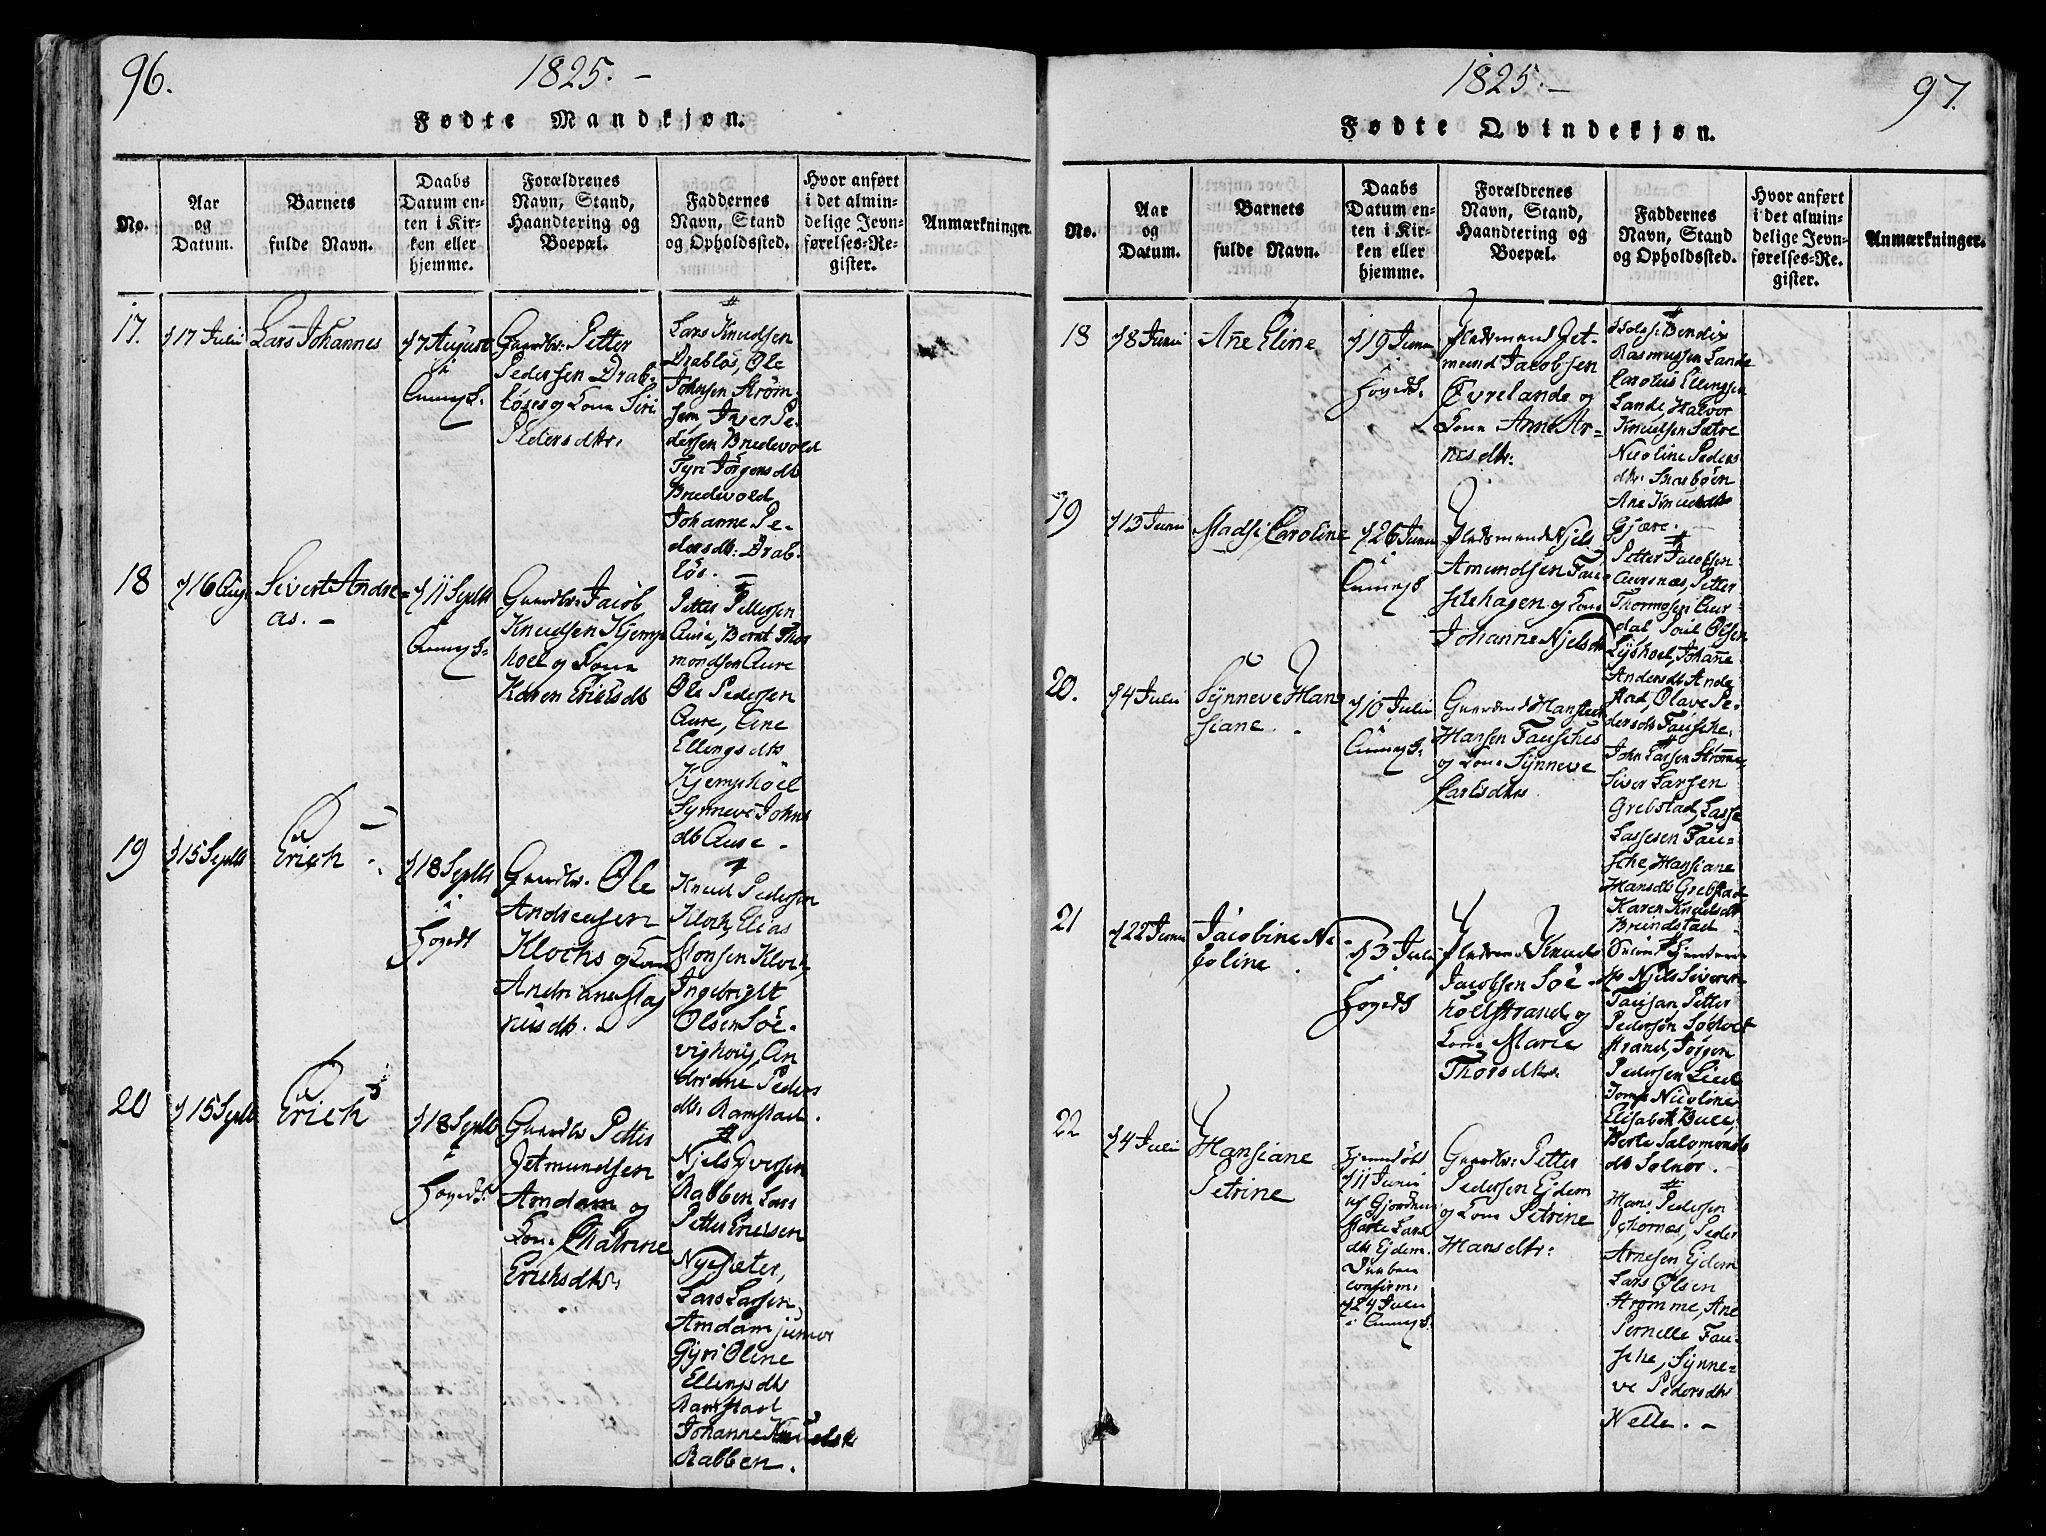 96.
1825. -
Fødte Mandkjøn.
No.
Aar
og
Datum.
Barnets
fulde Navn.
Daabs
Datum en-
ten i Kir-
ken eller
hjemme.
Forældrenes
Navn, Stand,
Haandtering og
Boepæl.
Faddernes
Navn, Stand
og Opholdssted.
Hvor anført
i det almin-
delige Jevn-
førelses-Re-
gister.
Anmærkninger.
17.
17 Julii
Lars Johannes
7 August
i
Gaardbr: Petter
Pedersen Drab-
løs og Kone Siri
Pedersdtr.
Lars Knudsen
Drabløs, Ole
Johnsen Strøm-
sem, Iver Pe-
dersen Bredevold
Gyri Jörgensdtr
Bredevold
Johanne Pe-
dersdtr: Drab-
løs. -
18
16 Aug.
Sivert Andre-
as. -
11 Septbr
Gaardbr: Jacob
Knudsen Kjemp-
hoel og Kone
Karen Ericksdtr
Petter Pettersen
Aure, Bernt Thor
mondsen Aure
Ole Pedersen
Aure, Ane
Ellingsdtr
Kjemphoel
Synneve Johns
dtr Aure -
19
15 Septbr
Erich
18 Septbr
i
Gaardbr. Ole
Andreasen
Klochs og Kone
Andriane Mag
nusdtr. -
Knud Pedersen
Kloch, Elias
Monsen Kloch
Ingebright
Olsen Søe-
vighoug, An
driane Peders
dtr Ramstad.
20
15 Septbr
Erich
18 Septbr
i
Gaardbr Petter
Jetmundsen
Amdam og
Kone Chatrine
Erichsdtr
Njels Iversen
Rabben Lars
Petter Ericsen
Nysæter,
Lars Larsen
Amdam junior
Gyri Oline
Ellingsdtr
Ramstad
Johanne Knudsdtr
Rabben.
1825. -
97.
Fødte Qvindekjøn.
No.
Aar
og
Datum.
Barnets
fulde Navn.
Daabs
Datum en-
ten i Kir-
ken eller
hjemme.
Forældrenes
Navn, Stand,
Haandtering og
Boepæl.
Faddernes
Navn, Stand
og Opholdssted.
Hvor anført
i det almin-
delige Jevn-
førelses-Re-
gister.
Anmærkninger.
18
8 Junii
Ane Eline
19 Junii
i
Pladsmand Jet-
mund Jacobsen
Øvrelande og
Kone Anne Ar-
nesdtr.
Bendix
Rasmussen Lande
Carolus Ellingsen
Lande, Halvor
Knudsen Sætre
Nicoline Peders
dtr.
Ane Knudsdtr
Gjære.
19
13 Junii
Madsi Caroline
26 Junii
i
Pladsmand Njels
Amundsen Fau-
skehagen og Kone
Johanne Njelsdtr
Petter Jacobsen
Aursnæs, Petter
Thormosen Aur-
dal Poul Olsen
Lyshoel, Johanne
Andersdtr Ande
stad, Olave Pe-
dersdtr Fausche.
20.
4 Julii
Synneve Han
siane.
10 Julii
i
Gaardmand Hans
Hansen Fausches
og Kone Synneve
Carlsdtr
John Larsen Strømme,
Siver Larsen
Grebstad, Lasse
Lassesen Fau-
sche, Hansiane
Hansdtr Grebstad
Karen Knudsdtr
Brundstad
21
22 Junii
Jacobine Ni-
coline.
3 Julii
i
Pladsmand Knud
Jacobsen Søe-
holstrand og
Kone Marie
Thorsdtr.
Njels Severin
Petter
Pedersøn Søeholt
strand, Jörgen
Pedersen Lied
Jomf Nicoline
Elisabeth Bull,
Berte Salomons
dtr Solnør. -
22
4 Julii
Hansiane
Petrine
Hjemmedøbt
11 Junii
af Gjordmor
Marte Lars
dtr Ejdem.
Daaben
confirm:
24 Julii
Gaardbr: Petter
Pedersen Ejdem
og Kone Petrine
Hansdtr:
Hans Pedersen
Peder
Arnesen Ejdem
Lars Olsen
Strømme, Ane
Pernelle Fau-
sche, Synne-
ve Pedersdtr
Velle. -